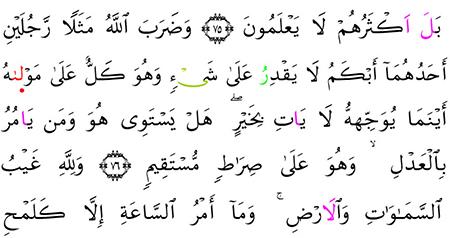 بَلَ اَكْثَرُهُمْ لَا يَعْلَمُونَ ۝٧٥ وَضَرَبَ اَللَّهُ مَثَلًا رَّجُلَيْنِ
أَحَدُهُمَآ أَبْكَمُ لَا يَقْدِرُ عَلَىٰ شَےْءٖ وَهُوَ كَلٌّ عَلَىٰ مَوْلٜىٰهُ
أَيْنَمَا يُوَجِّههُّ لَا يَاتِ بِخَيْرٍۖ هَلْ يَسْتَوِى هُوَ وَمَن يَامُرُ
بِالْعَدْلِ ۙ وَهُوَ عَلَىٰ صِرَاطٖ مُّسْتَقِيمٖ ۝٧٦ وَلِلَّهِ غَيْبُ
اُلسَّمَٰوَٰتِ وَالَارْضِ ۚ وَمَآ أَمْرُ اُلسَّاعَةِ إِلَّا كَلَمْحِ